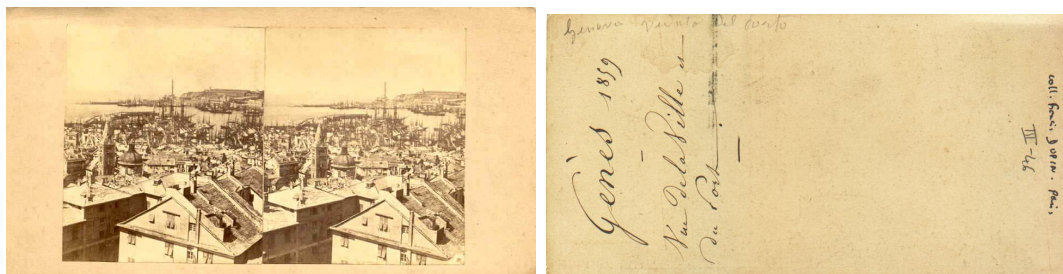 Genova veduta dal
Gènes 1859
Vue de la Ville et
du Port
coll. Paris
III-46